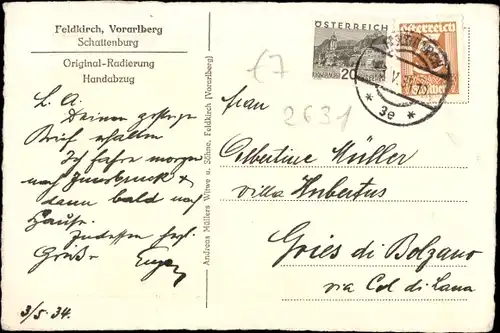 Feldkirch, Vorarlberg
Schattenburg
Original-Radierung
Handabzug
L. A.
Deinen gestrigen
Brief erhalten
Ich fahre morgen
nach Innsbruck &
dann bald nach
Hause.
Indessen herzl.
Grüße Eugen
3/5. 34.
Andreas Müllers Witwe u. Söhne, Feldkirch (Vorarlberg)
ÖSTERREICH
20
Österreich
* 3e *
£7
2631
Frau
Albertine Müller
Villa Hubertus
Gries di Bolzano
via Col di Lana